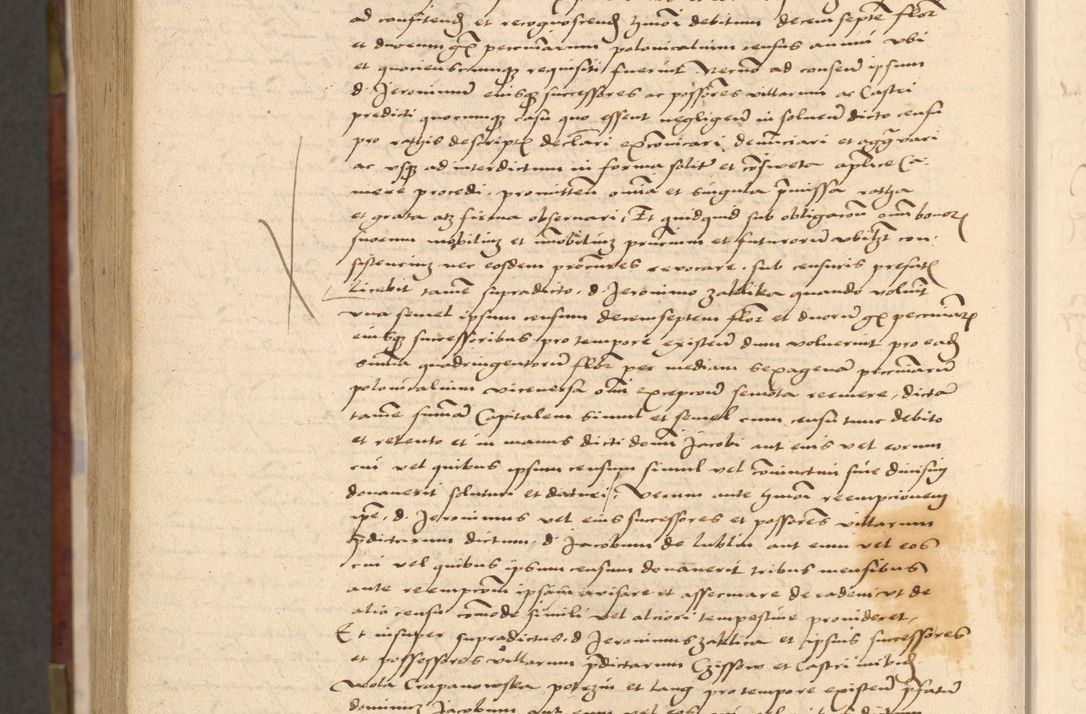 ad consitend et recognoscend hmoi debitum decem septe flor
et duorum gr pecuniarum polonicalium census annui ubi
et quocienscumq requisiti fuerint. Necno ad consen ipsum
d. Jeronimum eiusq successores ac possores villarum ac Castri
predicti quocumq casu quo essent negligen in solucn dicto censu
pro ratis descript declarari excoicari denunciari et aggravari
ac usq ad interdictum in forma solit et consweta aplice Ca
mere procedi. promitten omia et singula pmissa ratha
et grata atq firma observari, Et quidquid sub obligacon oim bonor
suorum mobilium et imobilium pncium et futurorum ubilt con
sistencium nec eosdem procures revocare. sub censuris prefat
Licebit tame supradicto. d. Jeronimo zaklika quando voluit
una semel ipsum censum decemseptem flor et duoru gr pecuniar
eiusq successoribus pro tempore existen dum voluerint pro ead
summa quadringentorum flor per mediam sexagena pecuniaru
polonicalium viceversa omi excepcone semota reemere, dicta
tame summa Capitalem simul et semel cum censu tunc debito
et retento et in manus dicti domi Jacobi aut eius vel eorum
cui vel quibus ipsum censum simul vel coniunctim sive divisim
donaverit soluturi et daturi. Verum ante hmoi reempcionem
ipe. d. Jeronimus vel eius successores et possores villarum
pdictarum dictum. d. Jacobum de lublin aut eum vel eos
cui vel quibus ipsum censum donaverit tribus mensibus
ante reempcom ipsam avisare et assecurare de eadem ut de
alio censu comode simili vel alciori tempestive provideret,
Et insuper supradictus. d Jeronimus zaklica et ipsius successores
et possessores villarum pdictarum Czissow et Castri inibid
Wola Crapanowska potezin et lang pro tempore existen pfatu
dominum Jacobum aut eum vel eos